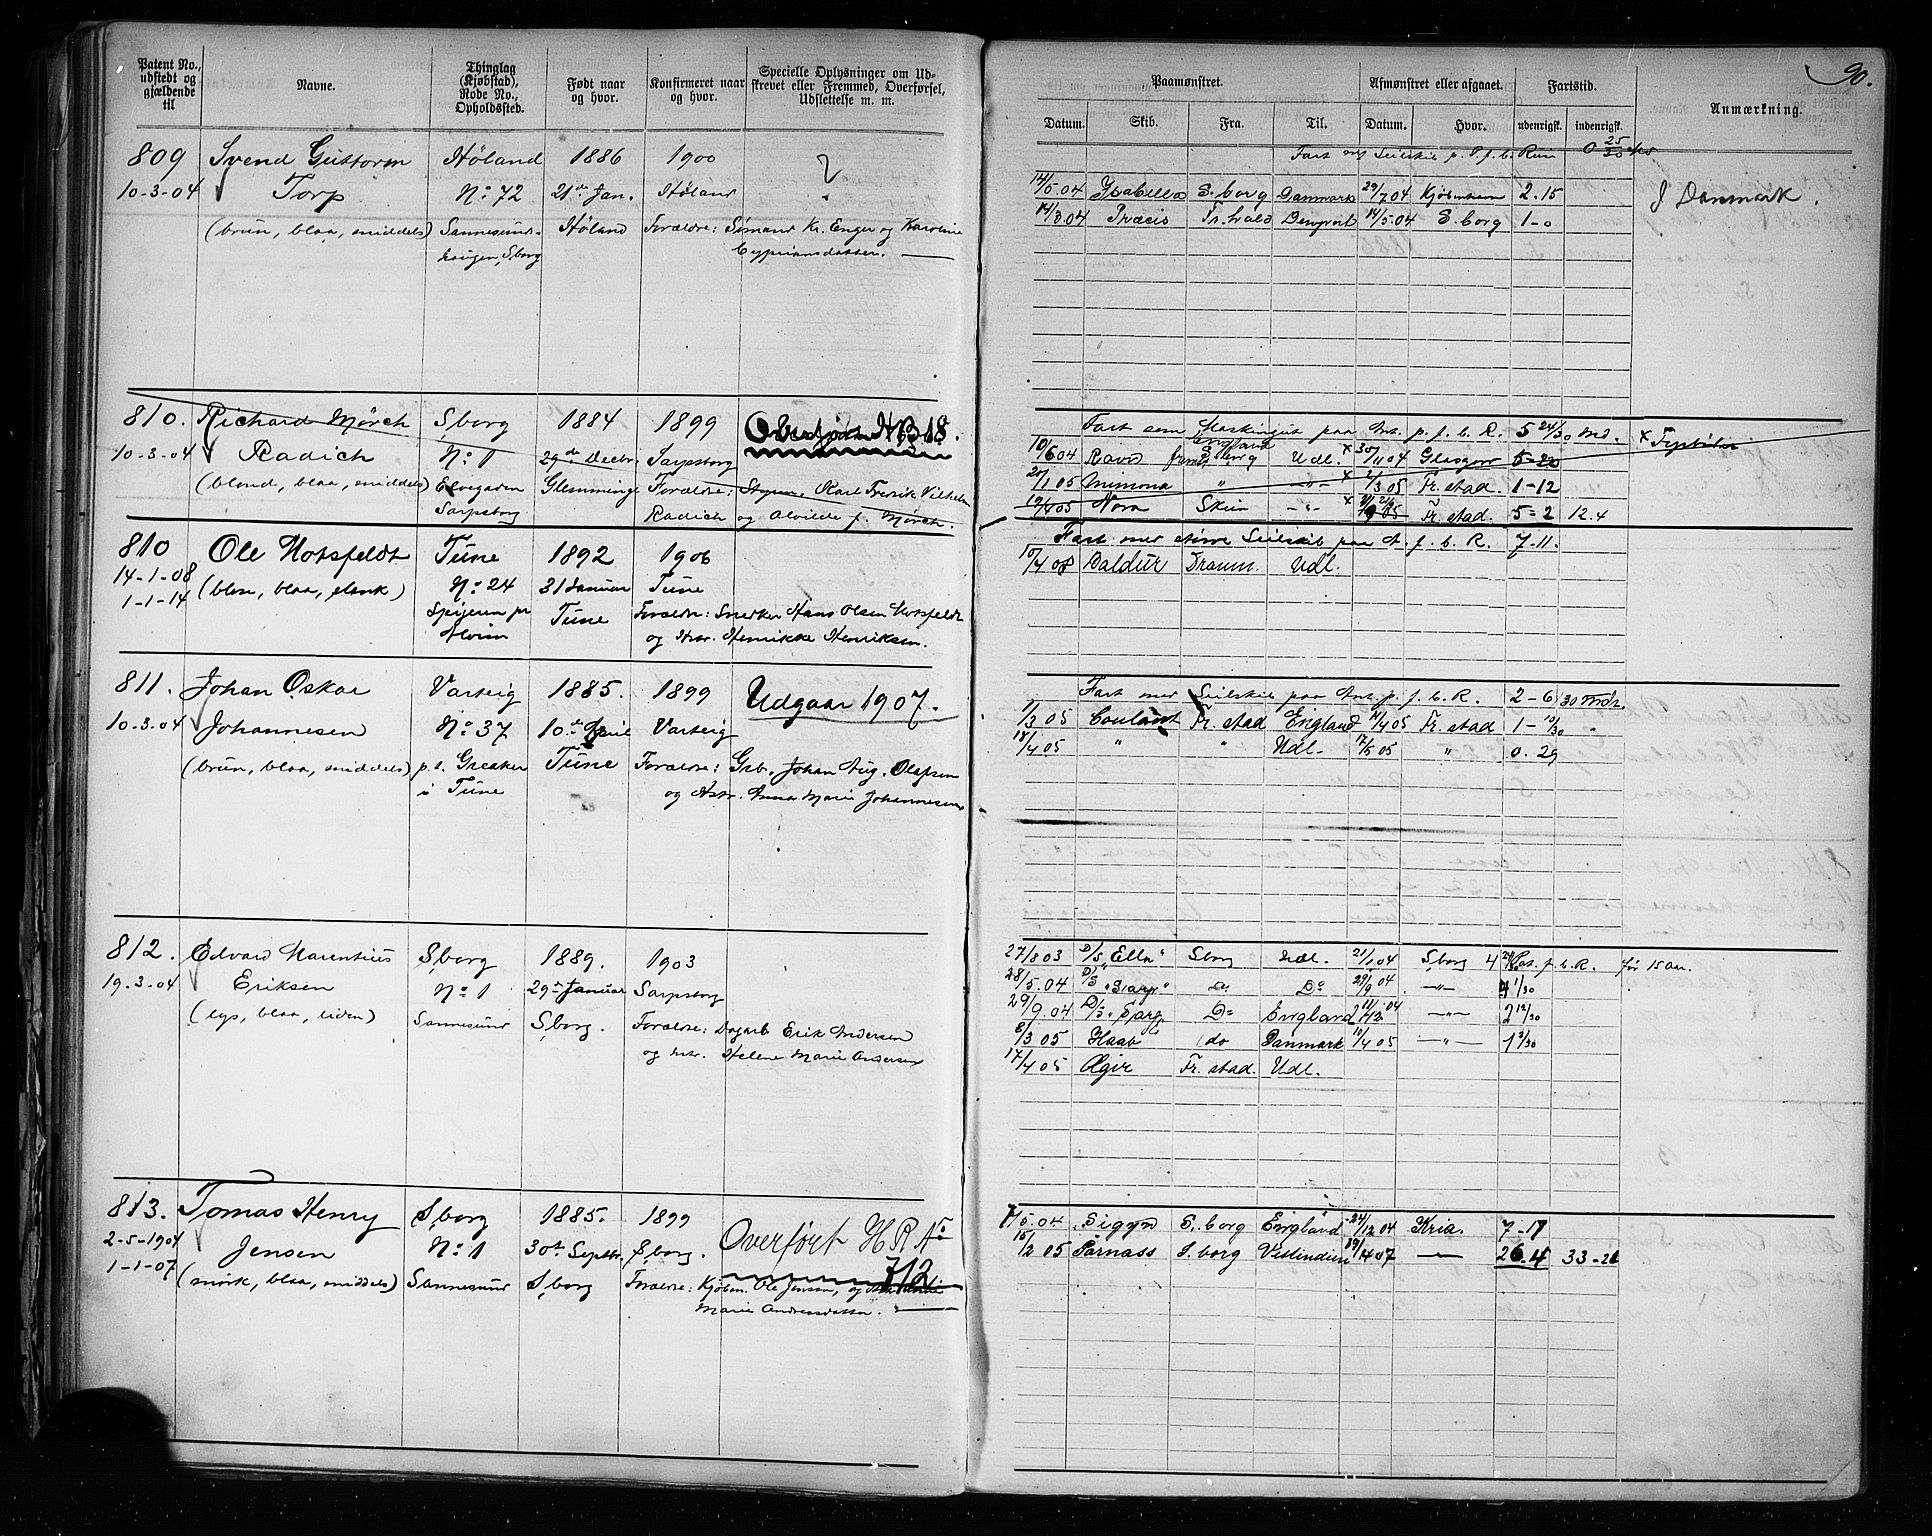 Patent No., udstedt og gjældende til
Navne.
Thinglag (Kjøbstad), Rode No., Opholdssted.
Født naar og hvor.
Konfirmeret naar og hvor.
Specielle Oplysninger om Udskrevet eller Fremmed, Overførsel, Udslettelse m. m.
809 Svend Guttorm Høland 1886 1900
10-3-04 Torp No 72 21de Jan. Høland
(brun, blaa, middels) Sannesund- Høland Forældre: Sømand Kr. Enger og Karoline
haugen, Sborg Cypriansdatter.
810. Richard Mørch Sborg 1884 1899
10-3-04 Radich No 1 29de Decbr. Sarpsborg
(blond, blaa, middels) Glemminge Forældre: Karl Fredrik Vilhelm
Sarpsborg Radich og Alvilde f. Mørch.
810 Ole Hotsfeldt Tune 1892 1906
14-1-08 (blaa, slank) No 24 31 Januar Tune
1-1-14 Tune Forældre: Snedker Hans Olsen Hotsfeldt
og Hstr. Henrikke Henriksen.
811. Johan Oskar Varteig 1885. 1899 Udgaar 1907.
10-3-04 Johannesen No 37 10de April Varteig
(brun, blaa, middels) p.t. Greaker Tune Forældre: Grb. Johan Aug. Olafsen
i Tune og Hstr. Anna Marie Johannesen
812. Edvard Marentius Sborg 1889. 1903
19-3-04 Eriksen No 1 29de Januar Sarpsborg
(lys, blaa, liden) Sannesund Sborg. Forældre: Dagarb. Erik Andersen
og hstr. Helene Marie Andersen
813. Tomas Henry Sborg 1885. 1899 Overført H R No
2-5-1904 Jensen No 1 30te Septbr. Sborg. 712
1-1-07 (mørk, blaa, middels) Sannesund Sborg Forældre: Kjøbm. Ole Jensen, og
Marie Andreasdatter.
90.
Paamønstret.
Afmønstret eller afgaaet.
Fartstid.
Anmærkning.
Datum. Skib. Fra. Til. Datum. Hvor. udenrigsk. indenrigsk.
14/5.04 Ysabella S.borg Danmark 29/7 04 Kjøbenhavn 2.15 I Danmark.
14/3.04 Præcis Fr.hald 14/5.04 S.borg 1-0
5 24/30 Md.
10/6 04 England Udl. 30/11 04 Glasgow 5-20
20/1 05 Mimona " 2/3 05 Fr. stad. 1-12
Nora Skien Fr. stad. 5-2 12.4
7-11.
10/4 08 Baldur Dramm. Udl.
Fart med Seilskib paa Ant. p. f. b. R. 2-6/30 Mdr.
1/3 05 Coulant Fr. stad England 11/4 05 Fr. stad 1-10/30
18/4 05 " " Udl. 17/5 05 " 0.29
27/8 03 D/S "Ella" Sborg Udl. 21/1 04 Sborg 4 p. f. b. R. før 15 Aar.
28/5.04 D/S Do Do 29/9 04 4 1/30
29/9.04 D/S Do England 2 12/30
8/3 05 Haab do Danmark 10/4 05 1 3/30
17/4 05 Ægir Fr. stad. Udl.
1/5.04 Sigyn S.borg England 24/12 04 Kria. 7-17
15/2 05 Parnass S.borg Vestindien 19/4 07 26-4 33-21